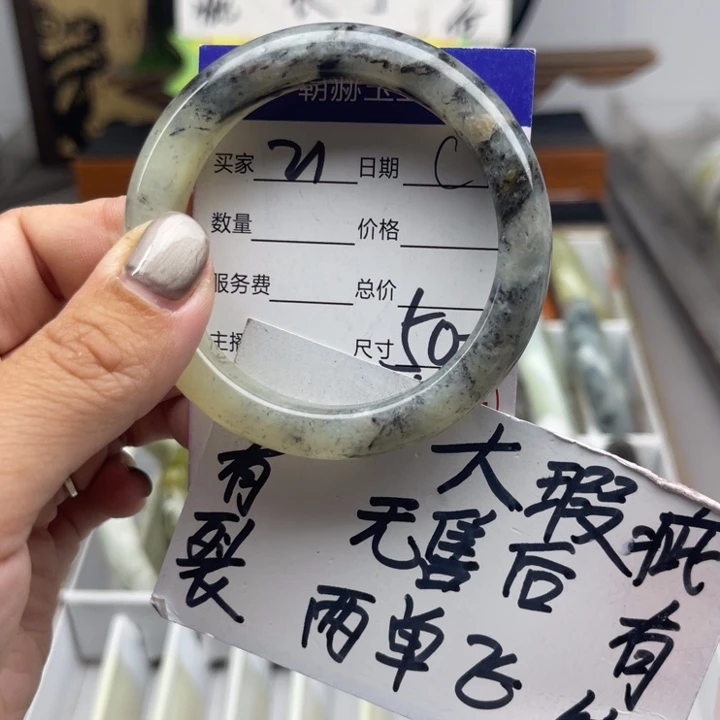 朝赫玉
买家 21 日期 C
数量 价格
服务费 总价
主播 尺寸 50
大瑕疵
有裂
无售后
有
两单飞